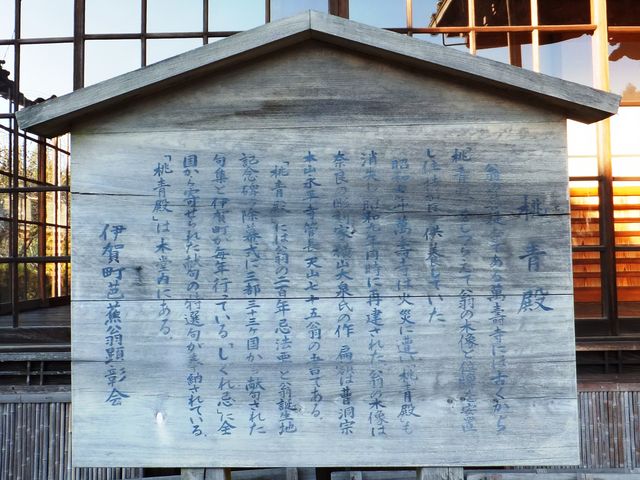 桃青殿
翁の菩提寺である萬壽寺には古くから
桃青殿
翁の木像と位牌を安置
し供養していた
昭和 年萬壽寺は火災に遭い桃青殿も
消失し昭和 年同時に再建された 翁の木像は
奈良の彫刻家 大泉氏の作 扁額は曹洞宗
本山永平寺管長 天山七十五翁の書である。
「桃青殿」には翁の二百年忌法要と翁誕生地
記念碑の除幕式に三部三十三ヶ国から献句された
句集と伊賀町が毎年行っている「しぐれ忌」に全
国から寄せられた秋句の特選句が奉納されている。
「桃青殿」は本堂内にある。
伊賀町芭蕉翁顕彰会